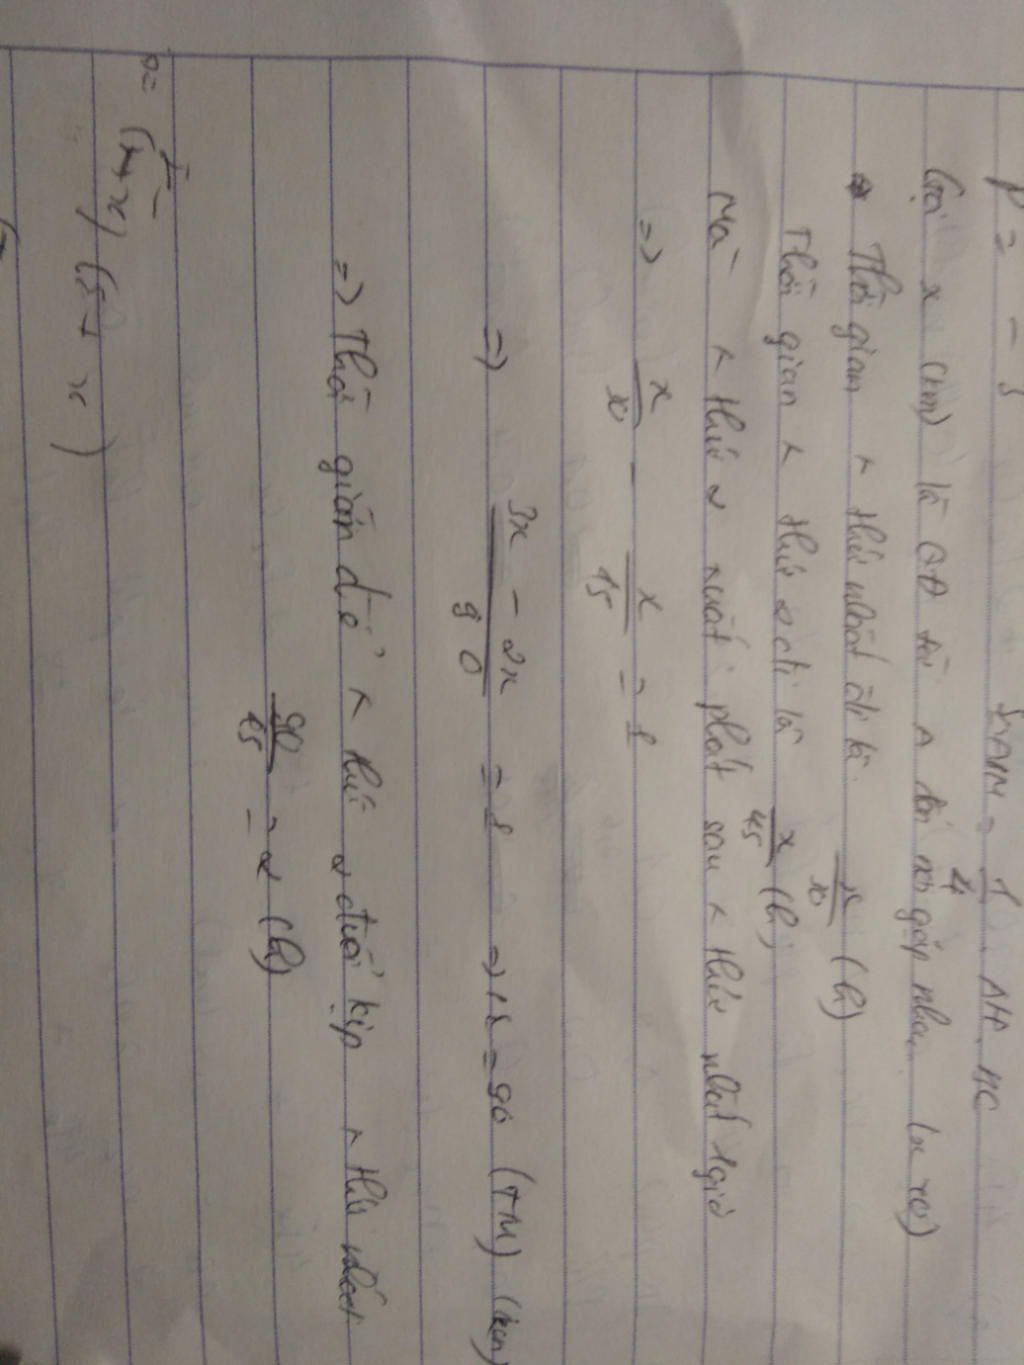 P = - S
SAHM = 1/4 . AH . HC
Gọi x (km) là QĐ từ A tới nơi gặp nhau (x > 0)
Thời gian x thứ nhất đi là x/30 (h)
Thời gian x thứ 2 đi là x/45 (h)
Mà x thứ 2 xuất phát sau x thứ nhất 1 giờ
=> x/30 - x/45 = 1
=> 3x - 2x/90 = 1 => x = 90 (TM) (km)
=> Thời gian để x thứ 2 đuổi kịp x thứ nhất
90/45 = 2 (h)
x)